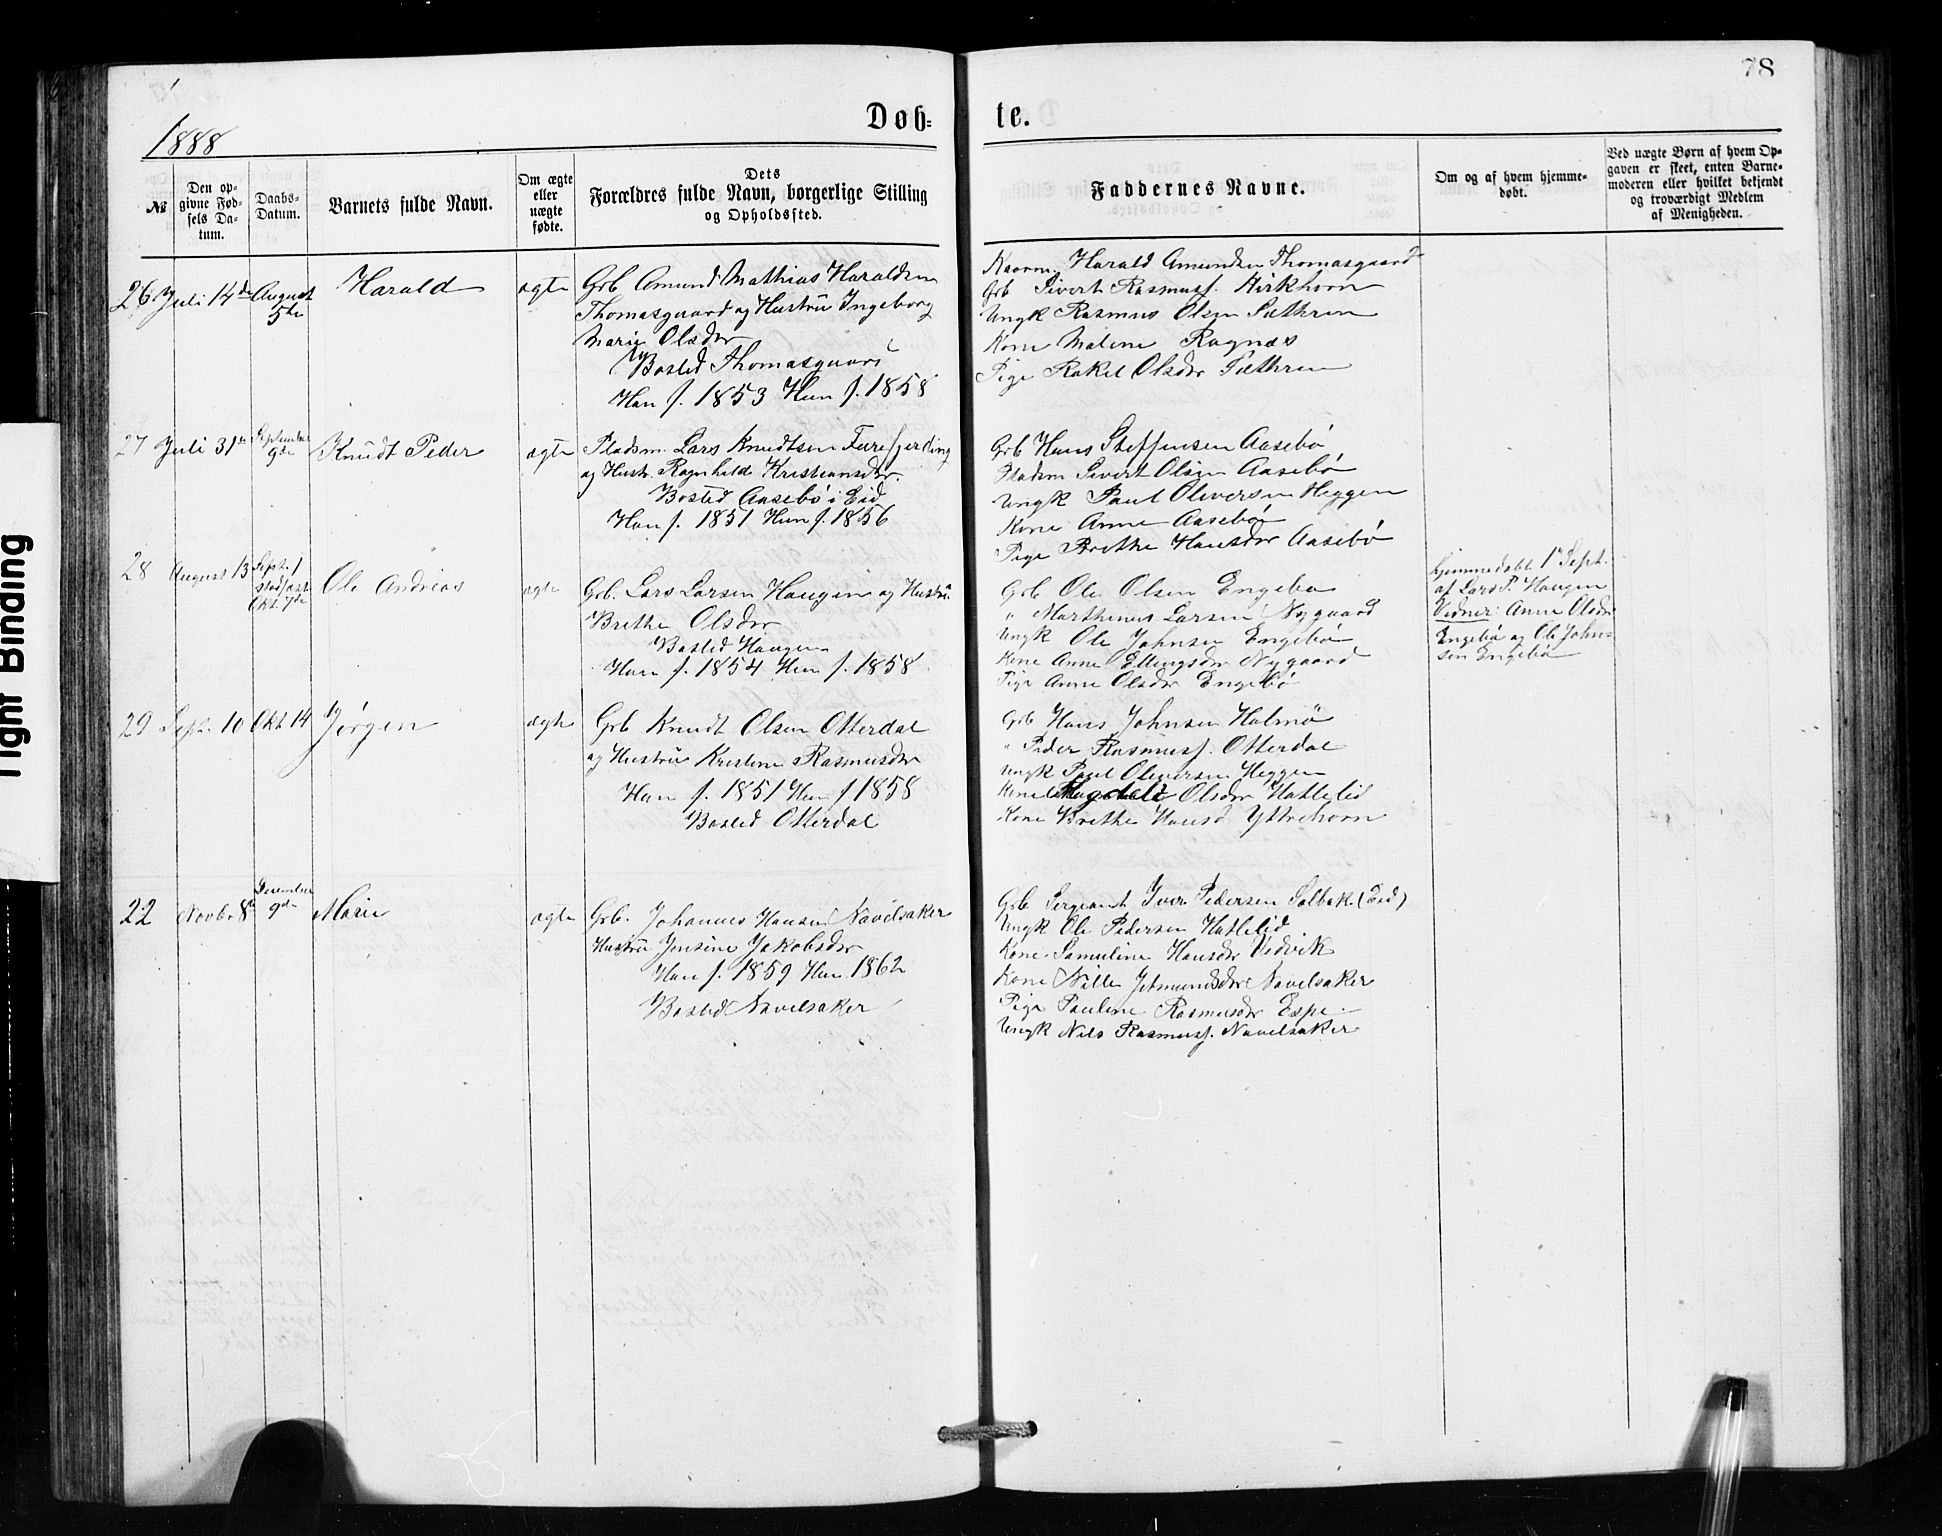 78
Døb-
te.
1888
№
Den op-
givne Fød-
sels Da-
tum.
Daabs-
Datum.
Barnets fulde Navn.
Om ægte
eller
uægte
fødte.
Dets
Forældres fulde Navn, borgerlige Stilling
og Opholdssted.
Faddernes Navne.
Om og af hvem hjemme-
døbt.
Ved uægte Børn af hvem Op-
gaven er skeet, enten Barne-
moderen eller hvilket bekjendt
og troværdigt Medlem
af Menigheden.
26 Juli 14de August
5te
Harald
ægte
Grb Amund Mathias Haraldsen
Thomasgaard og Hustru Ingeborg
Marie Olsdr
Bosted Thomasgaard
Han f. 1853 Hun f. 1858
Harald Amundsen Thomasgaard
Grb Sivert Rasmusf. Kirkhorn
Ungk Rasmus Olsen Sæthren
Kone Malene Rognæs
Pige Rakel Olsdr Sæthren
27 Juli 31te September
9de
Knudt Peder
ægte
Pladsm. Lars Knudtsen Furefjerding
og Hustr. Ragnhilde Kristiansdr.
Bosted Aasebø i Eid
Han f. 1851 Hun f. 1856
Grb Hans Steffensen Aasebø
Pladsm Sivert Olsen Aasebø
Ungk Paul Oliversen Heggen
Kone Anne Aasebø
Pige Brethe Hansdr Aasebø
28 August 13 Sept. 1
stadfæst
Okt. 7de
Ole Andreas
ægte
Grb. Lars Larsen Haugen og Hustru
Brethe Olsdr
Bosted Haugen
Han f. 1854 Hun f. 1858
Grb Ole Olsen Engebø
" Marthinus Larsen Nygaard
Ungk Ole Johnsen Engebø
Kone Anne Ellingsdr Nygaard
Pige Anne Olsdr Engebø
hjemmedøbt 1 Sept.
af Lars P. Haugen
Vidner: Anne Olsdr
Engebø og Ole John-
sen Engebø
29 Sept. 10 Okt 14
Jørgen
ægte
Grb Knudt Olsen Otterdal
og Hustru Kristine Rasmusdr
Han f. 1851 Hun f 1858
Bosted Otterdal
Grb Hans Johnsen Holmø
" Peder Rasmusf. Otterdal
Ungk Paul Oliversen Heggen
Kone Olsdr Hatlelid
Kone Brethe Hansd Yttrehorn
22 Novbr 8de December
9de
Marie
ægte
Grb. Johannes Hansen Navelsaker
Hustru Jensine Jakobsdr
Han f. 1859 Hun 1862
Bosted Navelsaker
Grb Sergeant Iver Pedersen Solbak (Eid)
Ungk Ole Pedersen Hatlelid
Kone Samuline Hansdr Vedvik
Kone Nille Jetmundsdr Navelsaker
Pige Pauline Rasmusdr Espe
Ungk Nils Rasmusf. Navelsaker
Tight Binding